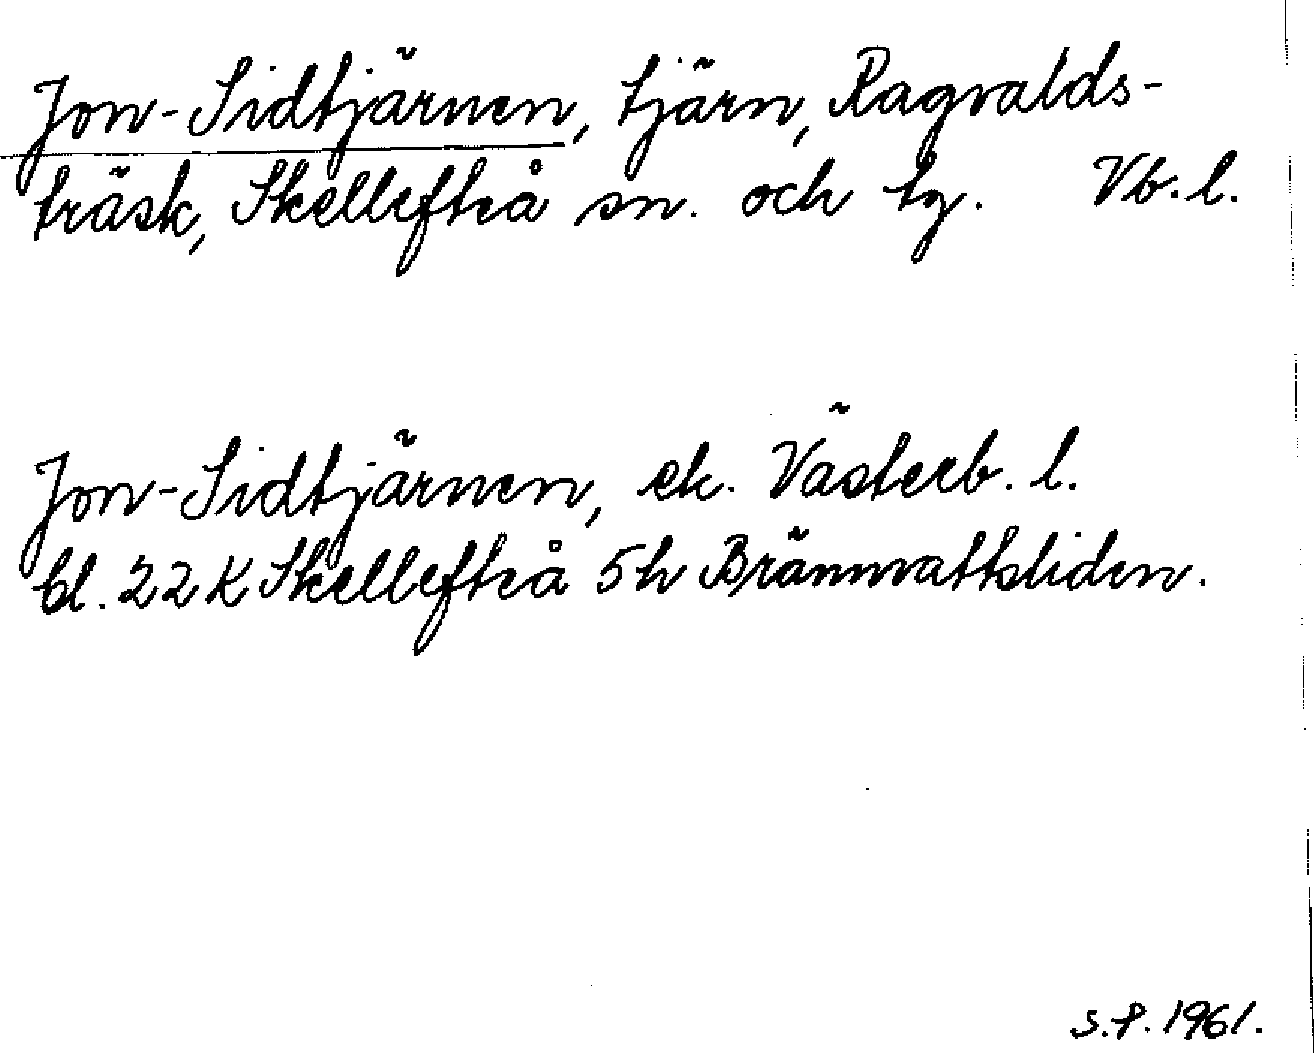 Jon-Sidtjärnen, tjärn, Ragvalds-
träsk, Skellefteå sn. och tg. Vb. l.
Jon-Sidtjärnen, ek. Västerb. l.
bl. 22 K Skellefteå 5h Brännvattsliden.
S.P. 1961.